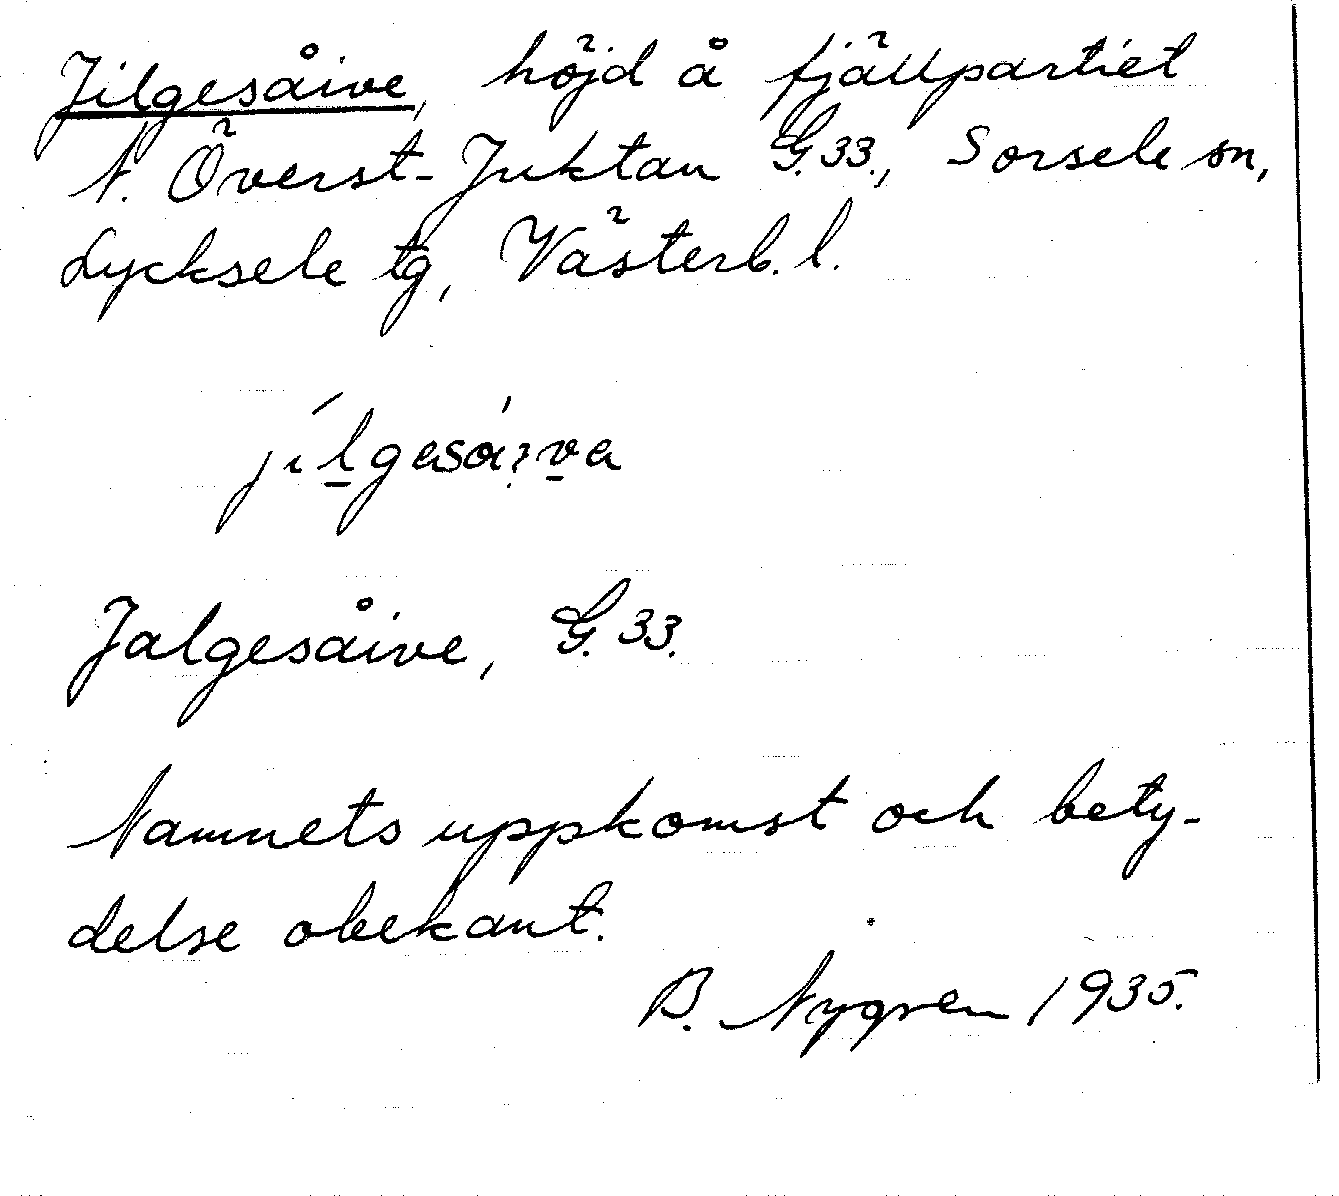 Jilgesåive, höjd å fjällpartiet
N. Överst-Juktan G.33., Sorsele sn,
Lycksele tg, Västerb. l.
Jalgesåive, G.33.
Namnets uppkomst och bety-
delse obekant.
B. Nygren 1935.